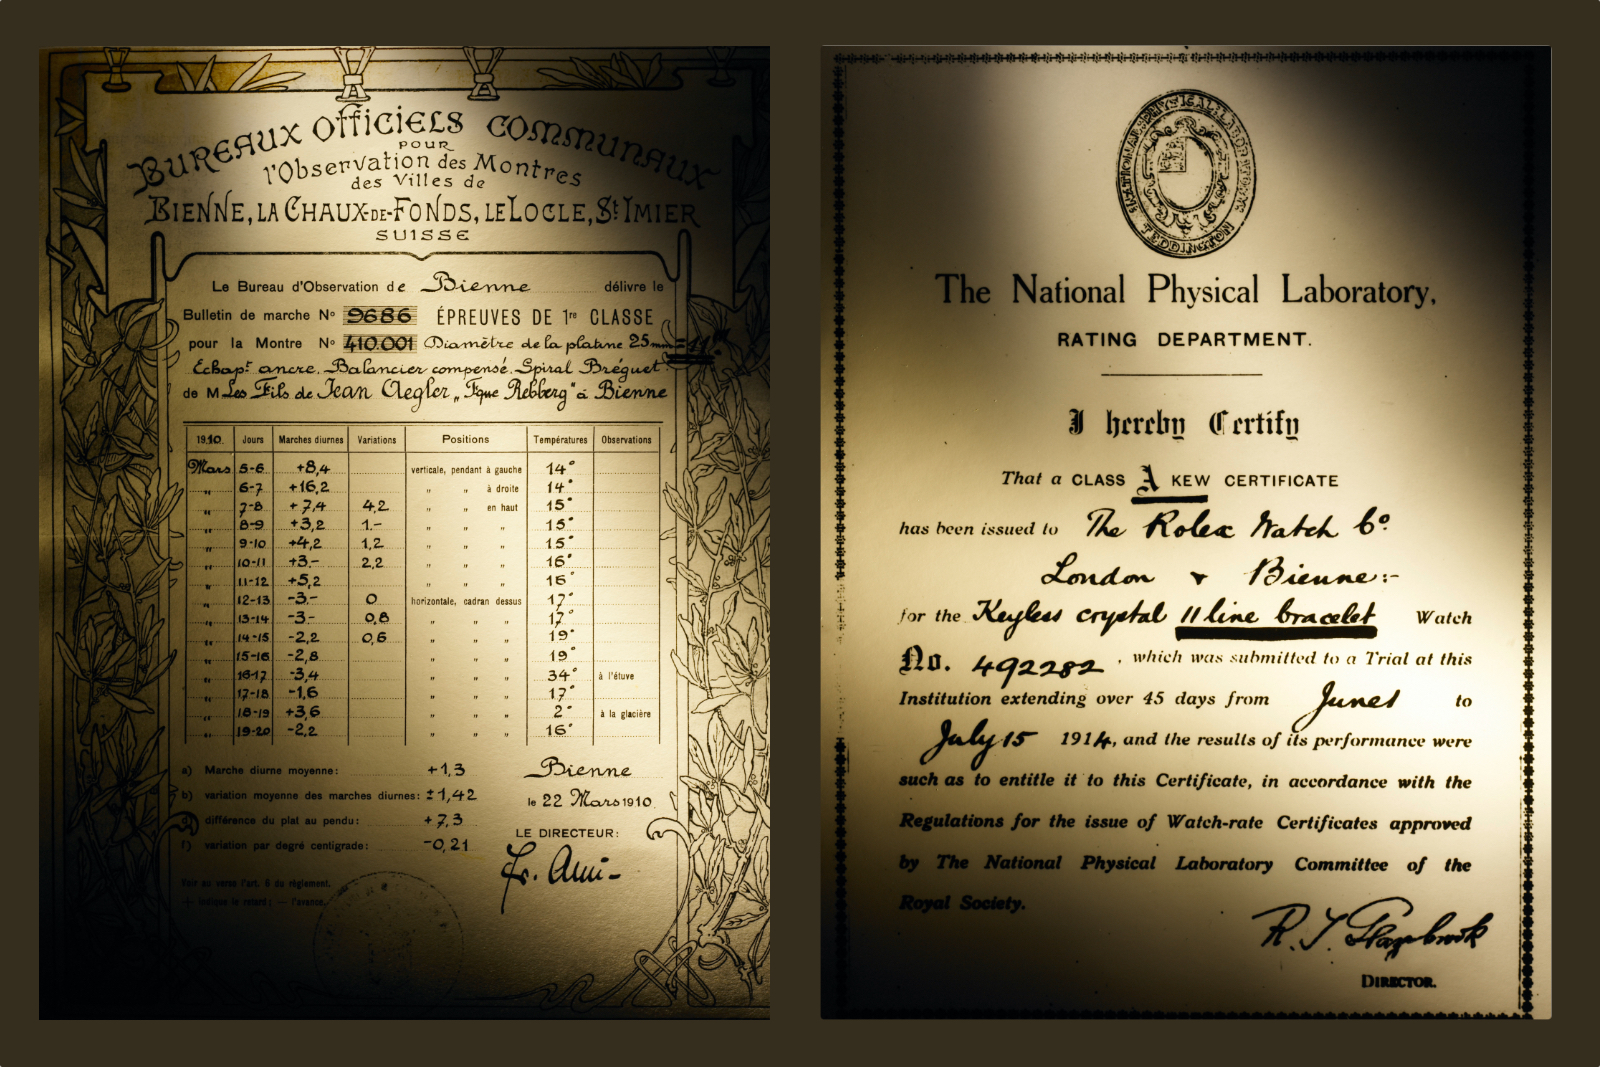 BUREAUX OFFICIELS COMMUNAUX
POUR
l'Observation des Montres
des Villes de
BIENNE, LA CHAUX-DE-FONDS, LE LOCLE, St IMIER
SUISSE
Le Bureau d'Observation de Bienne délivre le
Bulletin de marche No 9686 ÉPREUVES DE 1re CLASSE
pour la Montre No 410.001 Diamètre de la platine 25 mm = 11'''
Echapt ancre. Balancier compensé. Spiral Bréguet.
de M Les Fils de Jean Aegler „Fque Rebberg" à Bienne
1910. Jours Marches diurnes Variations Positions Températures Observations
Mars 5-6 +8,4 verticale, pendant à gauche 14°
„ 6-7 +16,2 „ „ à droite 14°
„ 7-8 +7,4 4,2 „ „ en haut 15°
„ 8-9 +3,2 1.- „ „ „ 15°
„ 9-10 +4,2 1,2 „ „ „ 15°
„ 10-11 +3.- 2,2 „ „ „ 16°
„ 11-12 +5,2 „ „ „ 16°
„ 12-13 -3.- 0 horizontale, cadran dessus 17°
„ 13-14 -3.- 0,8 „ „ „ 17°
„ 14-15 -2,2 0,6 „ „ „ 19°
„ 15-16 -2,8 „ „ „ 19°
„ 16-17 -3,4 „ „ „ 34° à l'étuve
„ 17-18 -1,6 „ „ „ 17°
„ 18-19 +3,6 „ „ „ 2° à la glacière
„ 19-20 -2,2 „ „ „ 16°
a) Marche diurne moyenne: +1,3
b) variation moyenne des marches diurnes: ±1,42
d) différence du plat au pendu: +7,3
f) variation par degré centigrade: -0,21
Bienne
le 22 Mars 1910.
LE DIRECTEUR:
Voir au verso l'art. 9 du règlement.
+ indique le retard; — l'avance.
NATIONAL PHYSICAL LABORATORY
TEDDINGTON
The National Physical Laboratory,
RATING DEPARTMENT.
I hereby Certify
That a CLASS A KEW CERTIFICATE
has been issued to The Rolex Watch Co.
London & Bienne:-
for the Keyless crystal 11 line bracelet Watch
No. 492282, which was submitted to a Trial at this
Institution extending over 45 days from June 1 to
July 15 1914, and the results of its performance were
such as to entitle it to this Certificate, in accordance with the
Regulations for the issue of Watch-rate Certificates approved
by The National Physical Laboratory Committee of the
Royal Society.
R. T. Glazebrook
DIRECTOR.